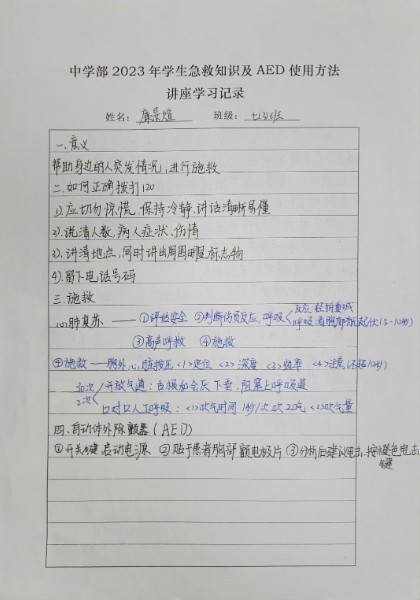 中学部 2023 年学生急救知识及 AED 使用方法
讲座学习记录
姓名： 班级：
一.意义
帮助身边的人突发情况,进行施救
二.如何正确拨打120
1).应切勿惊慌,保持冷静,讲话清晰易懂
2).说清人数,病人症状、伤情
3).讲清地点,同时讲出周围明显标志物
4).留下电话号码
三.施救
心肺复苏 —— ①评估安全 ②判断伤员反应 呼吸 反应
呼吸 看胸部 起伏(5-10秒)
③高声呼救 ④施救
④施救——胸外心脏按压 <1>定位 <2>深度 <3>频率 <4>
30次 开放气道：舌根和会厌下垂,阻塞上呼吸道
2次 口对口人工呼吸：<1>吹气时间 1秒/次 2次 <2>吹气量
四.自动体外除颤器(AED)
①开关键启动电源 ②贴于患者胸部 电极片 ③分析后建议电击,按 色电击
键